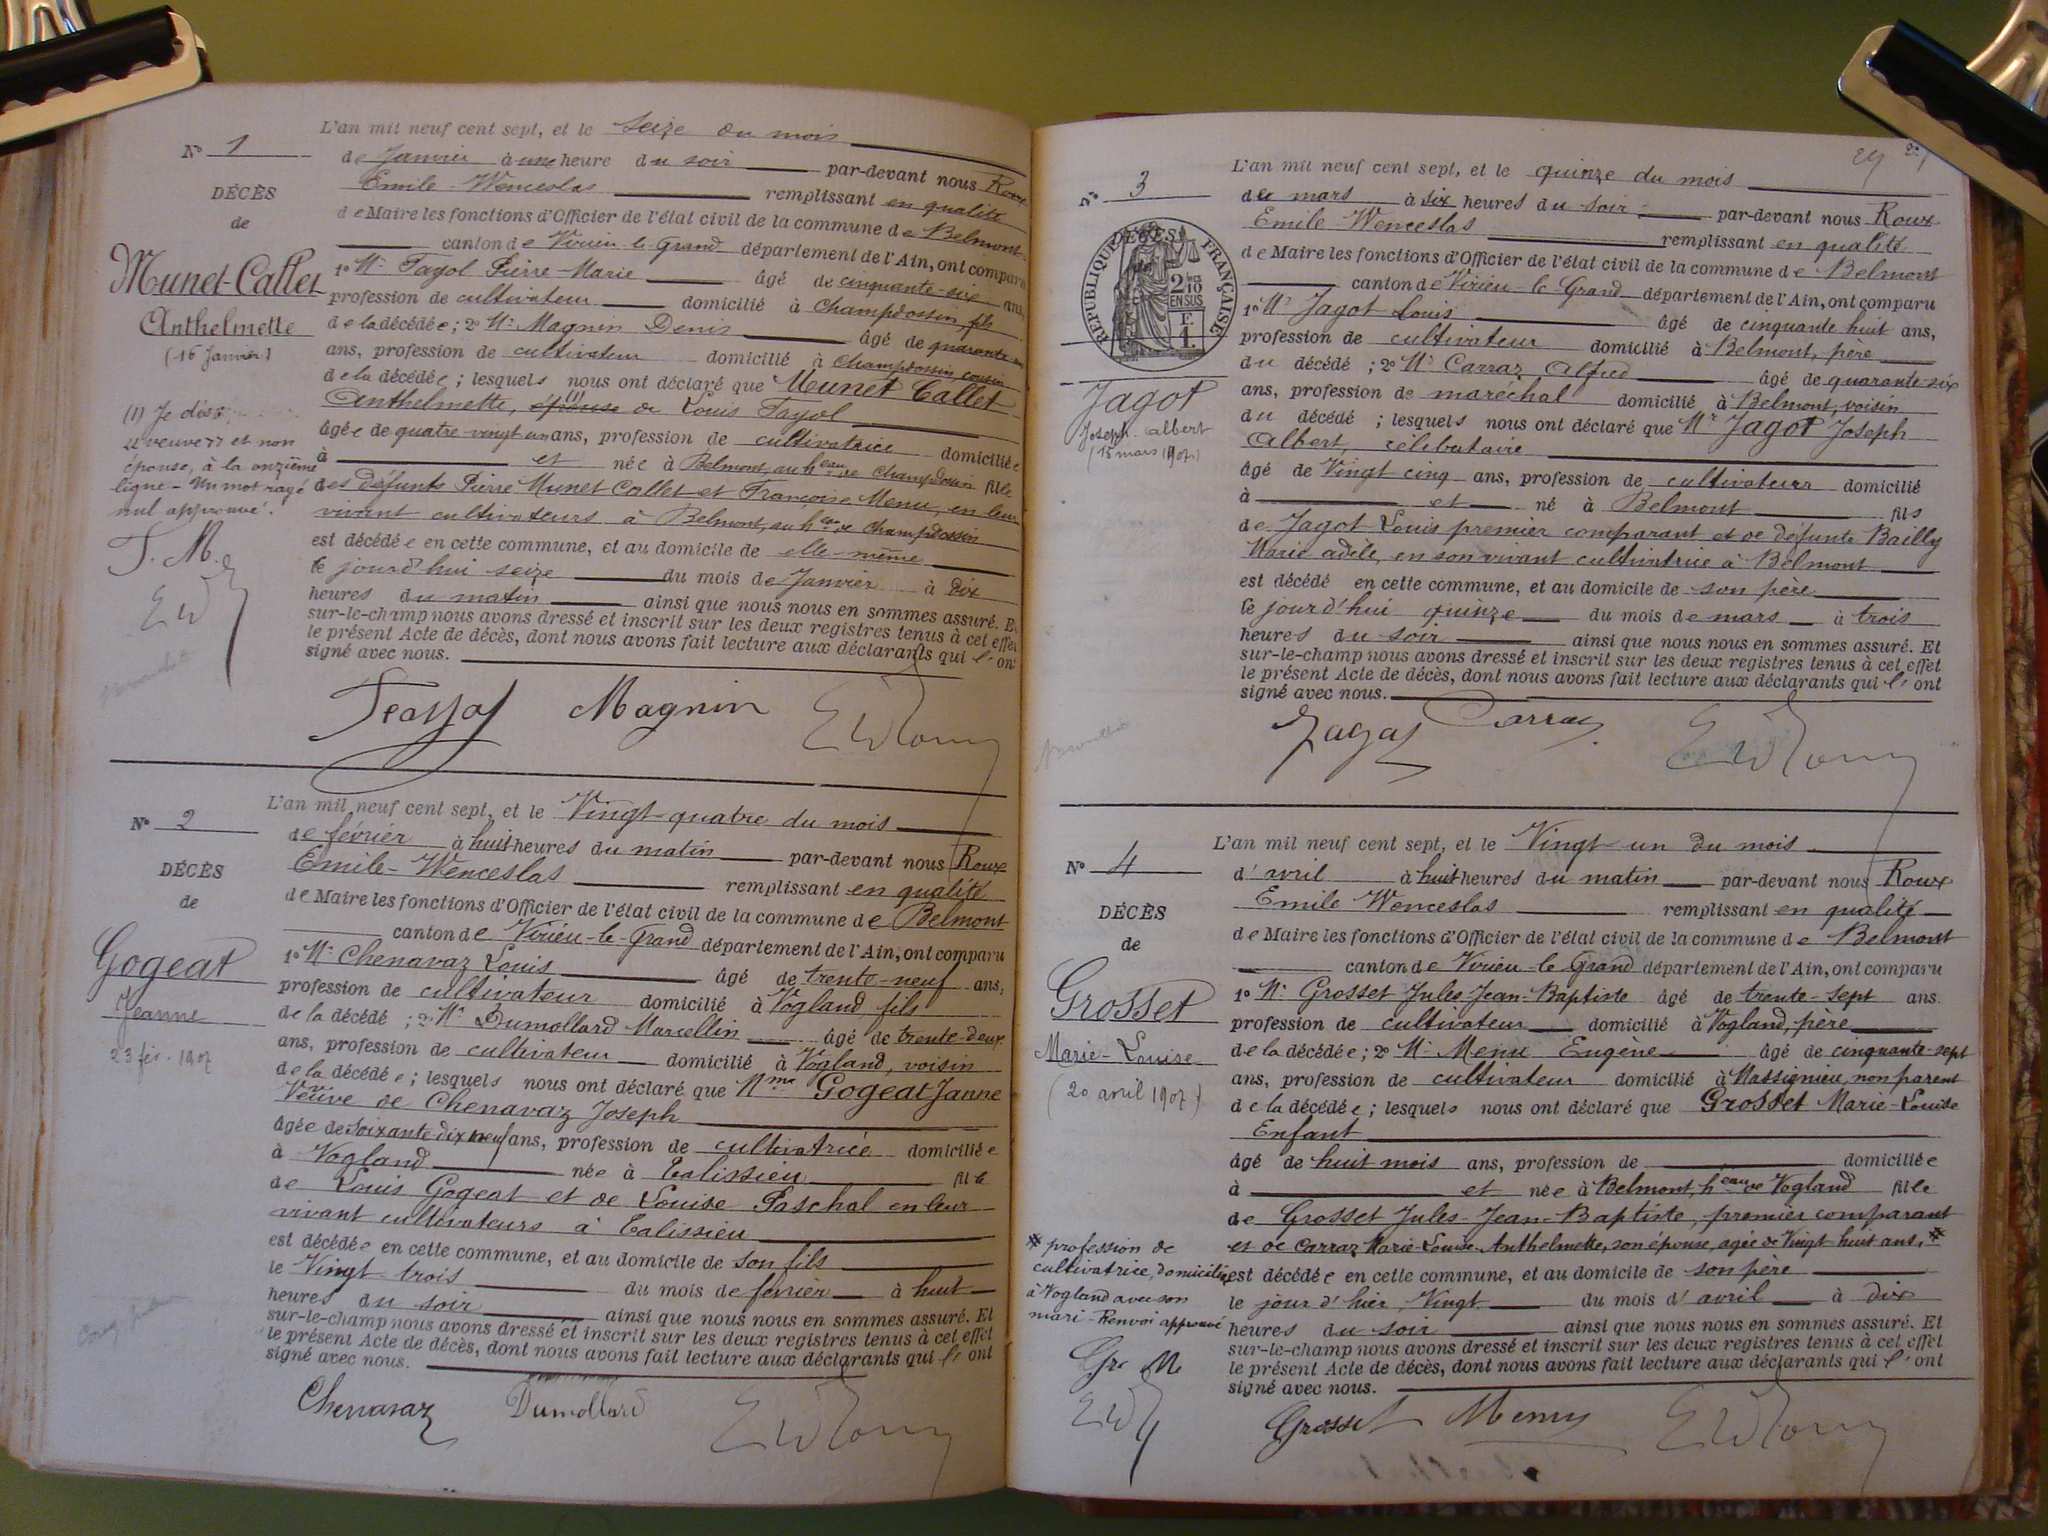 L'an mil neuf cent sept, et le seize du mois
N° 1
de Janvier à une heure du soir par-devant nous Roux
Emile Wenceslas remplissant en qualité
DÉCÈS
de Maire les fonctions d'Officier de l'état civil de la commune de Belmont
de
canton de Virieu-le-Grand département de l'Ain, ont comparu
Munet-Callet
1° Mr Fayol Pierre-Marie âgé de cinquante-six ans,
profession de cultivateur domicilié à Champdossin, fils
Anthelmette
de la décédée ; 2° Mr Magnin Denis âgé de quarante
(16 Janvier)
ans, profession de cultivateur domicilié à Champdossin cousin
de la décédée ; lesquels nous ont déclaré que Munet Callet
Anthelmette, (1) épouse de Louis Fayol
(1) Je dis
âgée de quatre-vingt un ans, profession de cultivatrice domiciliée
"veuve" et non
à et née à Belmont, au heau de Champdossin fille
épouse, à la onzième
des défunts Pierre Munet Callet et Françoise Menu, en leur
ligne - Un mot rayé
vivant cultivateurs à Belmont, au heau de Champdossin
nul approuvé.
est décédée en cette commune, et au domicile de elle-même
F. M.
le jourd'hui seize du mois de Janvier à dix
heures du matin ainsi que nous nous en sommes assuré. Et
sur-le-champ nous avons dressé et inscrit sur les deux registres tenus à cet effet
le présent Acte de décès, dont nous avons fait lecture aux déclarants qui l'ont
signé avec nous.
Magnin
L'an mil neuf cent sept, et le Vingt-quatre du mois
N° 2
de février à huit heures du matin par-devant nous Roux
Emile-Wenceslas remplissant en qualité
DÉCÈS
de Maire les fonctions d'Officier de l'état civil de la commune de Belmont
de
canton de Virieu-le-Grand département de l'Ain, ont comparu
Gogeat
1° Mr Chenavaz Louis âgé de trente-neuf ans,
profession de cultivateur domicilié à Vogland fils
Jeanne
de la décédé ; 2° Mr Dumollard Marcellin âgé de trente-deux
23 fév. 1907
ans, profession de cultivateur domicilié à Vogland, voisin
de la décédée ; lesquels nous ont déclaré que Mme Gogeat Janne
Veuve de Chenavaz Joseph
âgée de Soixante dix neuf ans, profession de cultivatrice domiciliée
à Vogland née à Talissieu fille
de Louis Gogeat et de Louise Paschal en leur
vivant cultivateurs à Talissieu
est décédée en cette commune, et au domicile de son fils
le Vingt trois du mois de février à huit
heures du soir ainsi que nous nous en sommes assuré. Et
sur-le-champ nous avons dressé et inscrit sur les deux registres tenus à cet effet
le présent Acte de décès, dont nous avons fait lecture aux déclarants qui l'ont
signé avec nous.
Chenavaz Dumollard
29
L'an mil neuf cent sept, et le quinze du mois
N° 3
du mars à six heures du soir par-devant nous Roux
Emile Wenceslas remplissant en qualité
RÉPUBLIQUE FRANÇAISE
2/10 EN SUS
F. 1.
de Maire les fonctions d'Officier de l'état civil de la commune de Belmont
canton de Virieu-le-Grand département de l'Ain, ont comparu
1° Mr Jagot Louis âgé de cinquante huit ans,
profession de cultivateur domicilié à Belmont, père
du décédé ; 2° Mr Carraz Alfred âgé de quarante-six
Jagot
ans, profession de maréchal domicilié à Belmont, voisin
Joseph-Albert
du décédé ; lesquels nous ont déclaré que Mr Jagot Joseph
(15 mars 1907)
Albert, célibataire
âgé de Vingt cinq ans, profession de cultivateur domicilié
à et né à Belmont fils
de Jagot Louis premier comparant et de défunte Bailly
Marie adèle, en son vivant cultivatrice à Belmont
est décédé en cette commune, et au domicile de son père
le jourd'hui quinze du mois de mars à trois
heures du soir ainsi que nous nous en sommes assuré. Et
sur-le-champ nous avons dressé et inscrit sur les deux registres tenus à cet effet
le présent Acte de décès, dont nous avons fait lecture aux déclarants qui l'ont
signé avec nous.
Jagot Carraz
L'an mil neuf cent sept, et le Vingt-un du mois
N° 4
d'avril à huit heures du matin par-devant nous Roux
Emile Wenceslas remplissant en qualité
DÉCÈS
de Maire les fonctions d'Officier de l'état civil de la commune de Belmont
de
canton de Virieu-le-Grand département de l'Ain, ont comparu
Grosset
1° Mr Grosset Jules-Jean-Baptiste âgé de trente-sept ans.
profession de cultivateur domicilié à Vogland, père
Marie-Louise
de la décédée ; 2° Mr Menu Eugène âgé de cinquante-sept
(20 avril 1907)
ans, profession de cultivateur domicilié à Massignieu, non parent
de la décédée ; lesquels nous ont déclaré que Grosset Marie-Louise
Enfant
âgé de huit mois ans, profession de domiciliée
à et née à Belmont, heau de Vogland fille
de Grosset Jules-Jean-Baptiste, premier comparant
* profession de
et de Carraz Marie-Louise-Anthelmette, son épouse, agée de Vingt huit ans, *
cultivatrice, domiciliée
est décédée en cette commune, et au domicile de son père
à Vogland avec son
le jour d'hier, Vingt du mois d'avril à dix
mari - Renvoi approuvé
heures du soir ainsi que nous nous en sommes assuré. Et
sur-le-champ nous avons dressé et inscrit sur les deux registres tenus à cet effet
Gr M
le présent Acte de décès, dont nous avons fait lecture aux déclarants qui l'ont
signé avec nous.
Grosset Menu